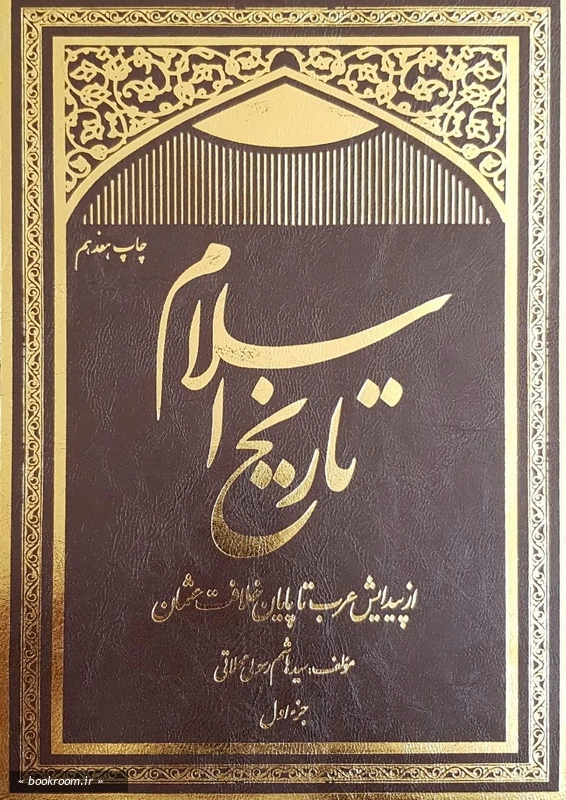 چاپ هفدهم
تاریخ اسلام
از پیدایش عرب تا پایان خلافت عثمان
مؤلف: سید هاشم رسولی محلاتی
جزء اول
« bookroom.ir »